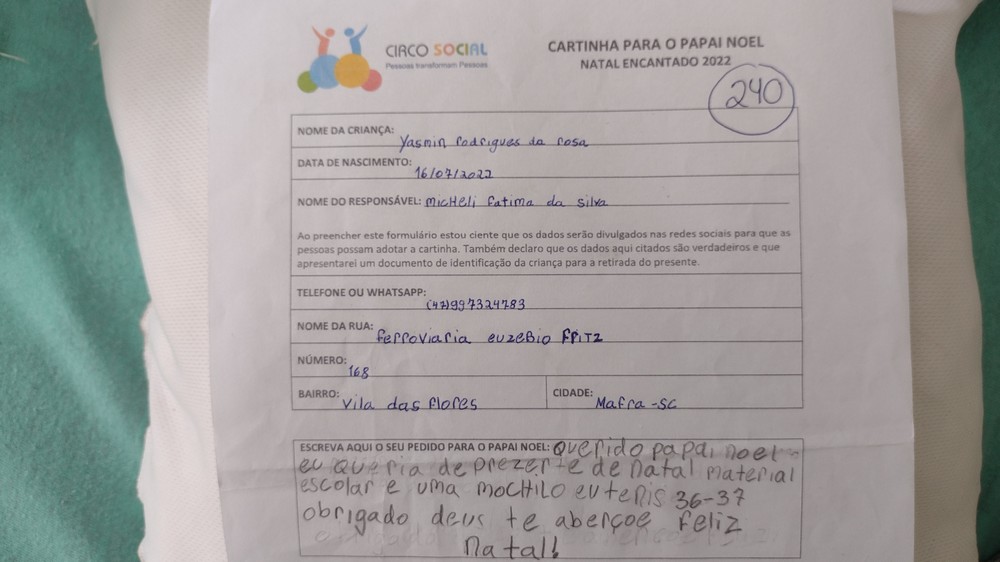 CIRCO SOCIAL
Pessoas transformam Pessoas
CARTINHA PARA O PAPAI NOEL
NATAL ENCANTADO 2022
240
NOME DA CRIANÇA: Yasmin rodrigues da rosa
DATA DE NASCIMENTO: 16/07/2022
NOME DO RESPONSÁVEL: micHeli fatima da silva
Ao preencher este formulário estou ciente que os dados serão divulgados nas redes sociais para que as
pessoas possam adotar a cartinha. Também declaro que os dados aqui citados são verdadeiros e que
apresentarei um documento de identificação da criança para a retirada do presente.
TELEFONE OU WHATSAPP: (47)997324783
NOME DA RUA: ferroviaria euzeBio FRITZ
NÚMERO: 168
BAIRRO: Vila das flores CIDADE: Mafra-SC
ESCREVA AQUI O SEU PEDIDO PARA O PAPAI NOEL: Querido papai noel
eu queria de prezente de natal material
escolar e uma mocHilo eutenis 36-37
obrigado deus te aberçoe feliz
natal!